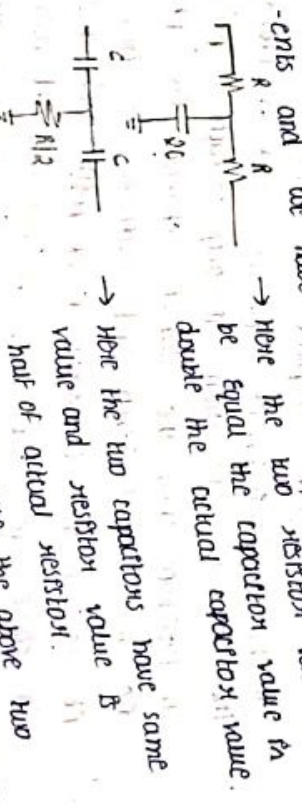 -ents and we have
R R
2C
→ Here the two resistor
be equal the capacitor value is
double the actual capacitor value.
C C
R/2
→ Here the two capacitors have same
value and resistor value is
half of actual resistor.
the above two